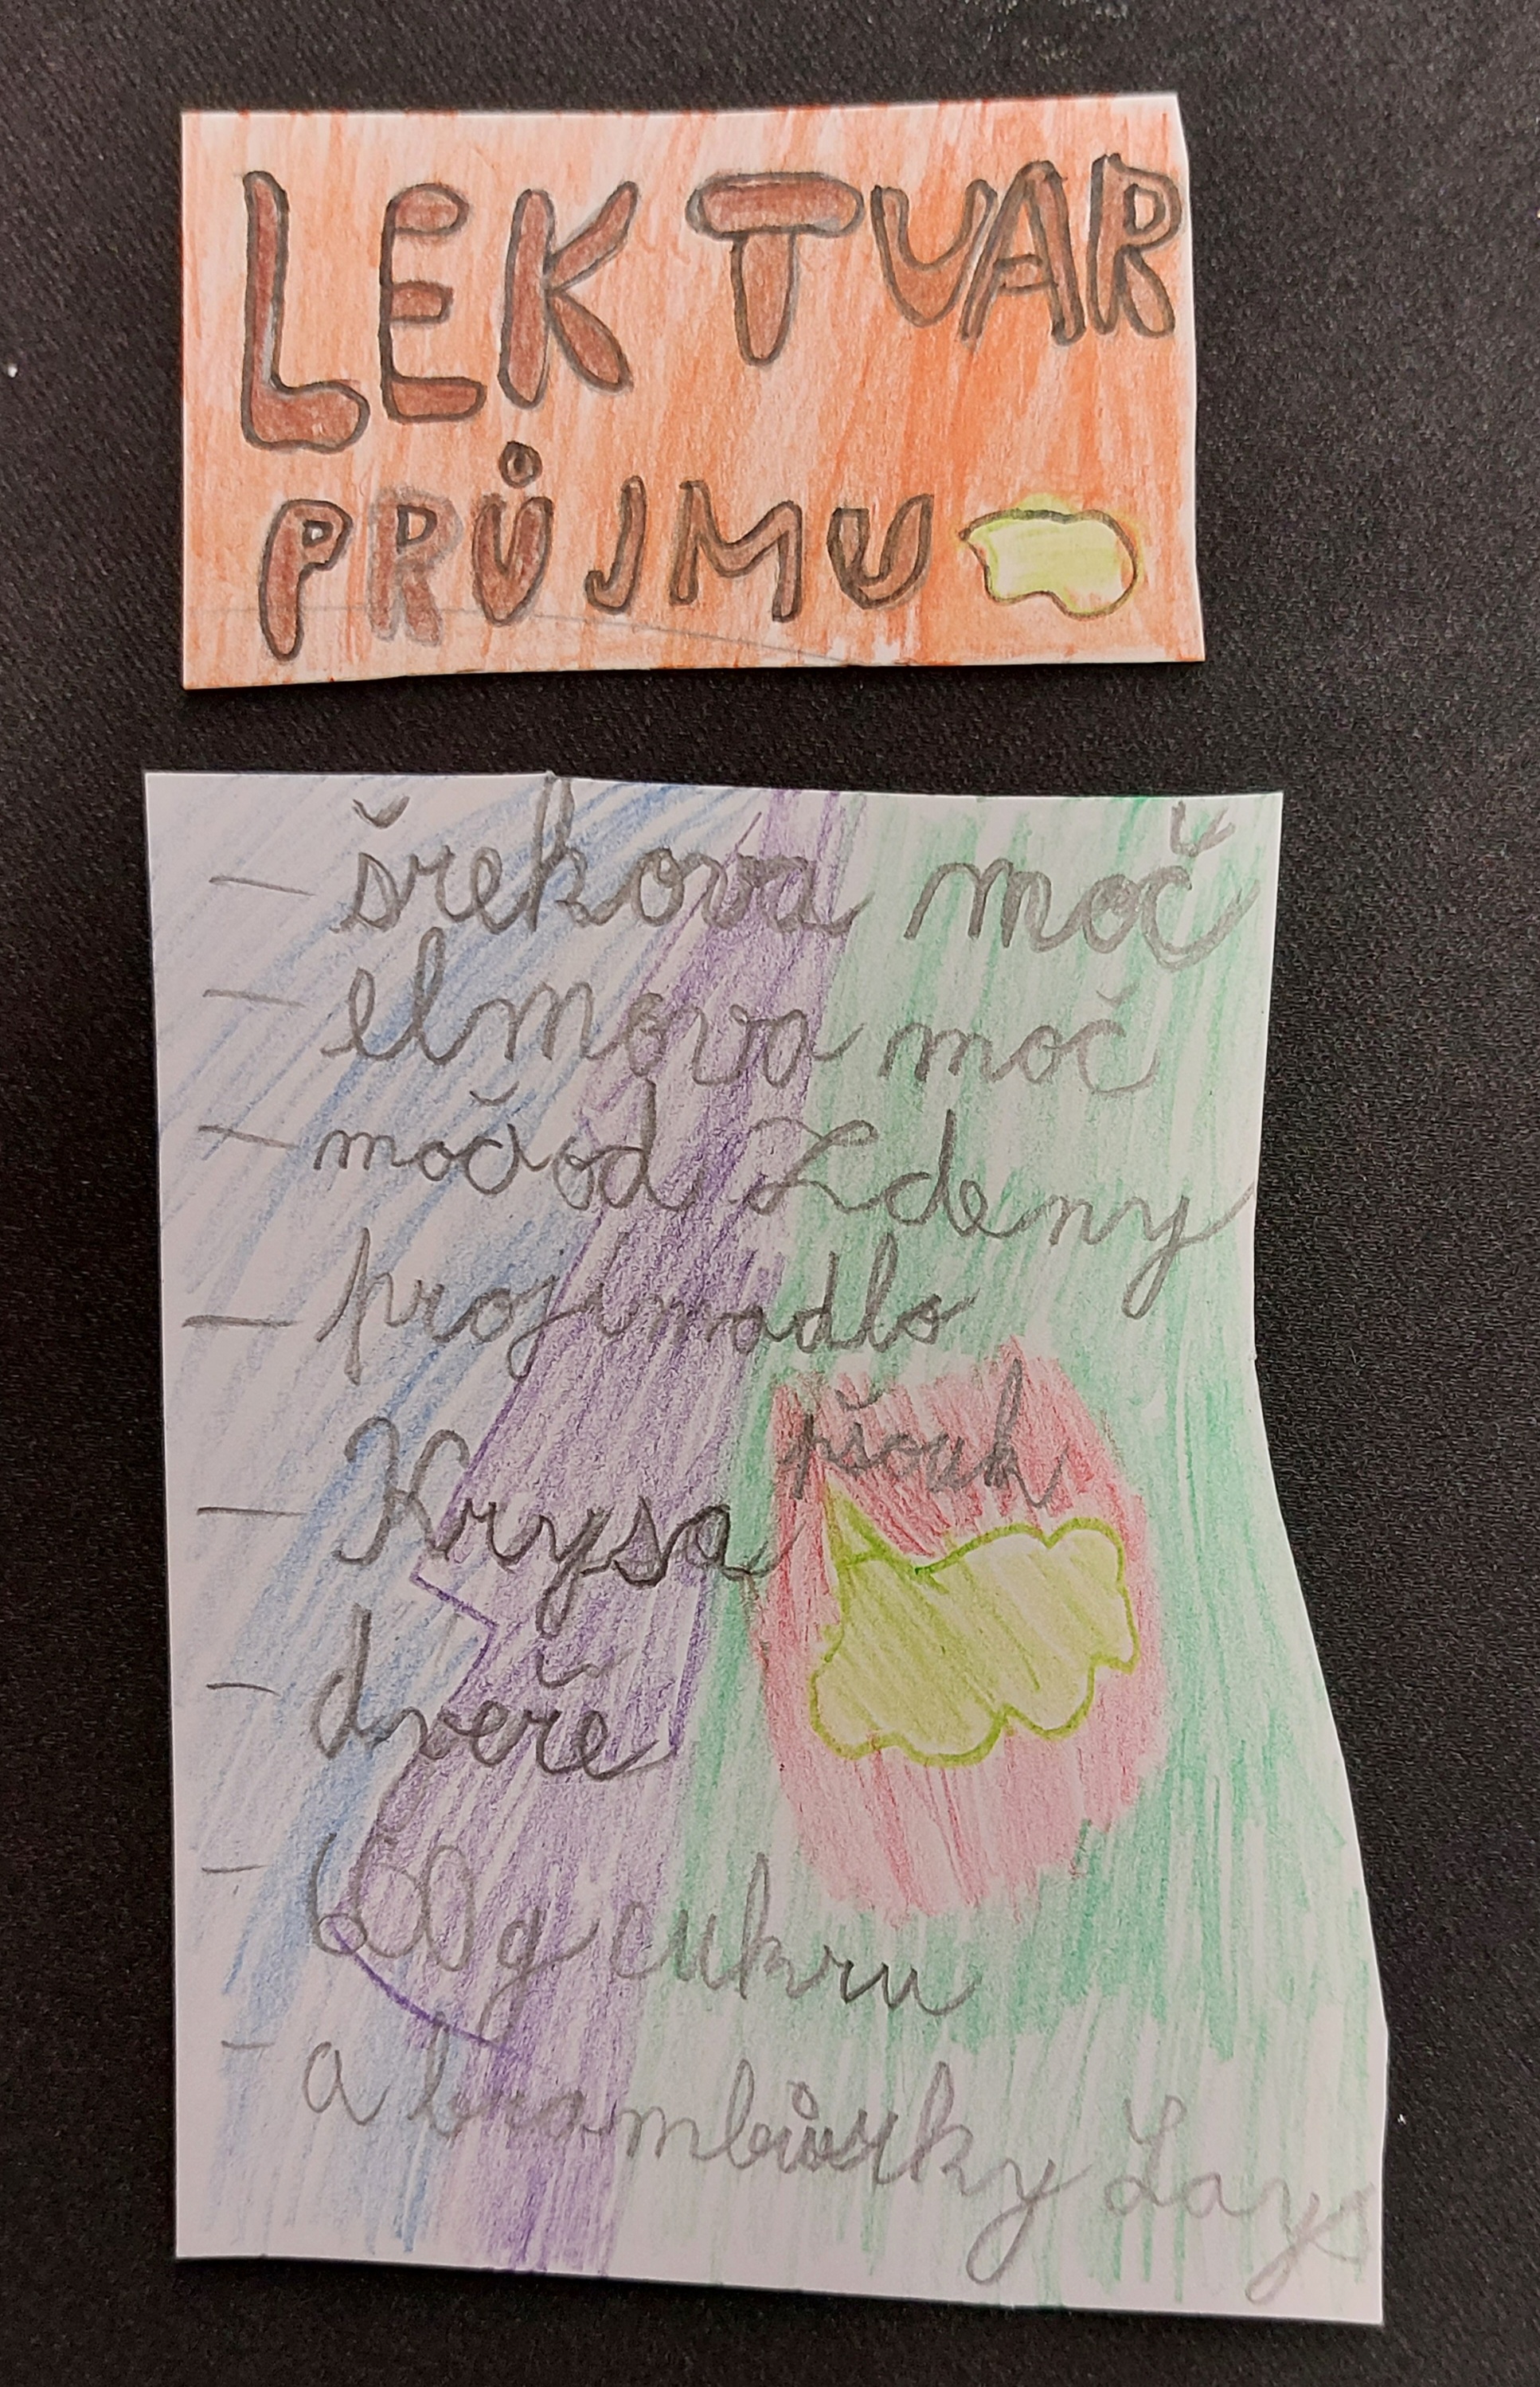 LEKTVAR
PRŮJMU
- šrekova moč
- elmova moč
- močod Zdeny
- projimadlo
pšouk
- Krysa
- dveře
- 600g cukru
- a brambůrky Lays